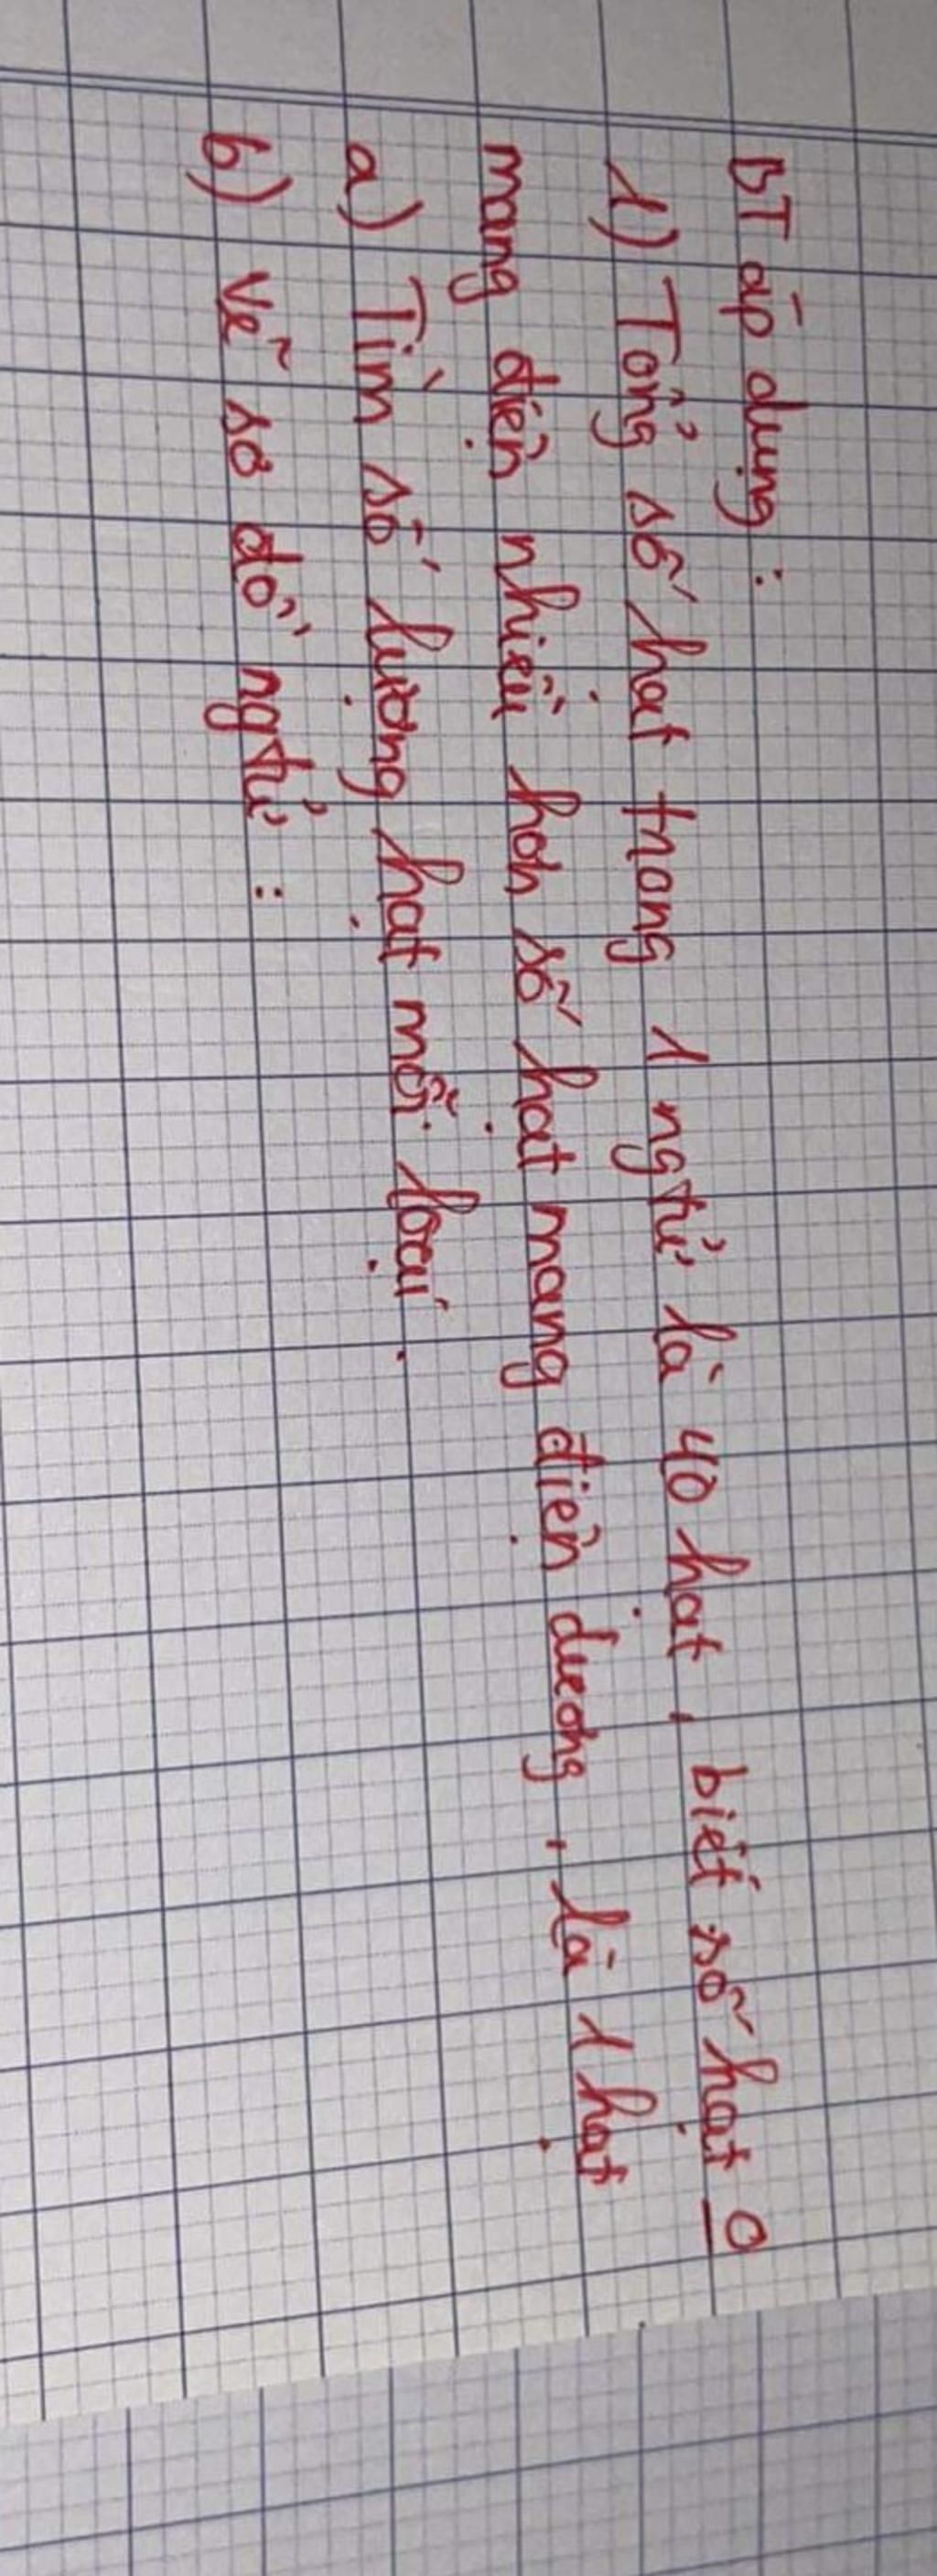 BT áp dụng :
1) Tổng số hạt trong 1 ngtử là 40 hạt, biết số hạt 0
mang điện nhiều hơn số hạt mang điện dương, là 1 hạt
a) Tìm số lượng hạt mỗi loại.
b) Vẽ sơ đồ ngtử :